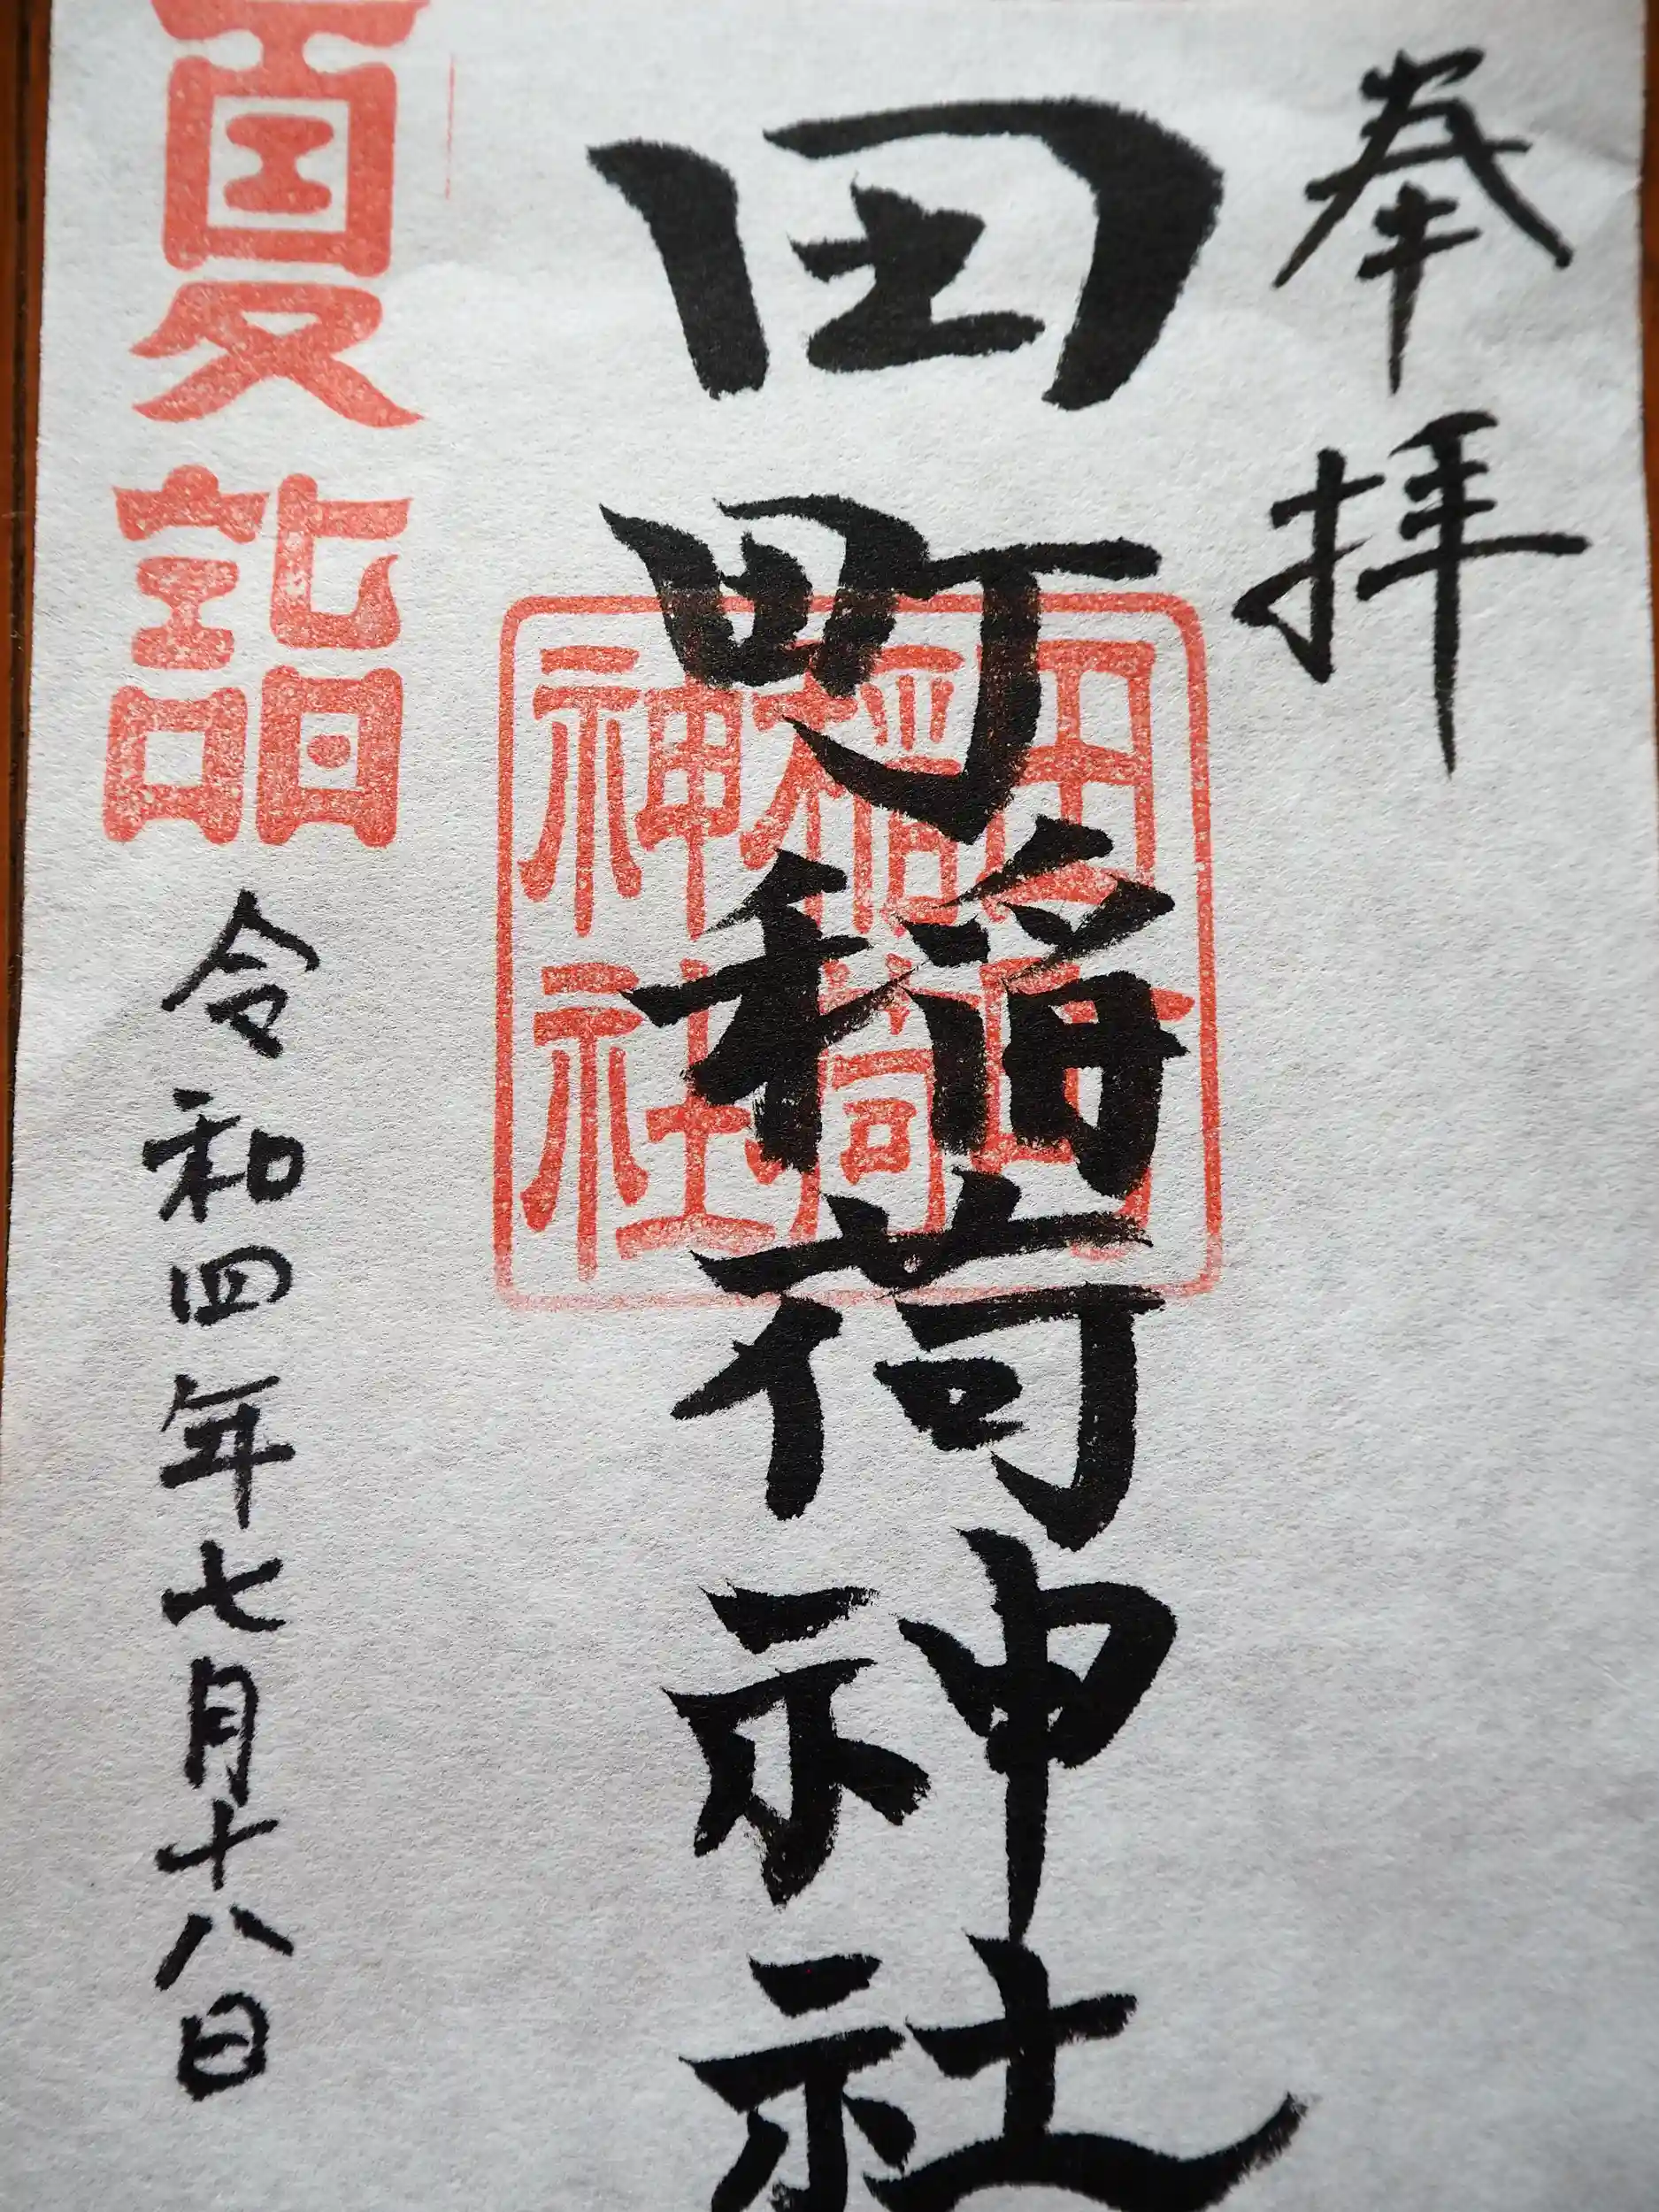 奉拝
田町稲荷神社
田町
稲荷
神社
夏詣
令和四年七月十八日